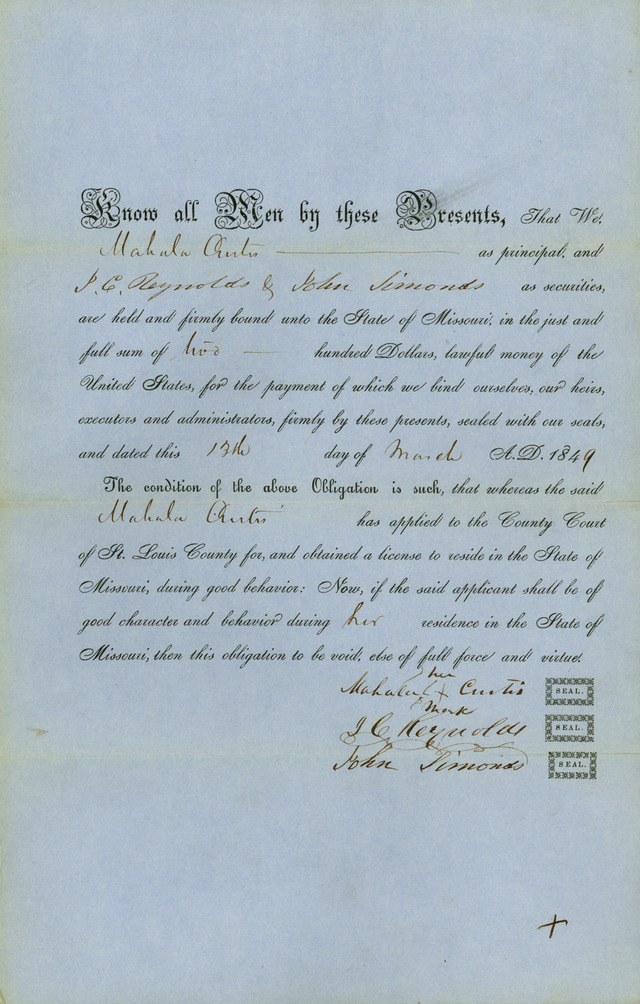 Know all Men by these Presents, That We,
Mahala Curtis as principal, and
J. C. Reynolds & John Simonds as securities,
are held and firmly bound unto the State of Missouri, in the just and
full sum of two hundred Dollars, lawful money of the
United States, for the payment of which we bind ourselves, our heirs,
executors and administrators, firmly by these presents, sealed with our seals,
and dated this 13th day of March A.D. 1849
The condition of the above Obligation is such, that whereas the said
Mahala Curtis has applied to the County Court
of St. Louis County for, and obtained a license to reside in the State of
Missouri, during good behavior: Now, if the said applicant shall be of
good character and behavior during her residence in the State of
Missouri, then this obligation to be void, else of full force and virtue.
her
Mahala X Curtis SEAL.
Mark
J C Reynolds SEAL.
John Simonds SEAL.
+